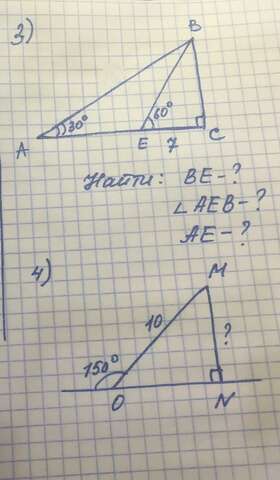 3)
B
30°
60°
A
E
7
C
Найти: BE-?
∠AEB-?
AE-?
4)
M
10
?
150°
O
N